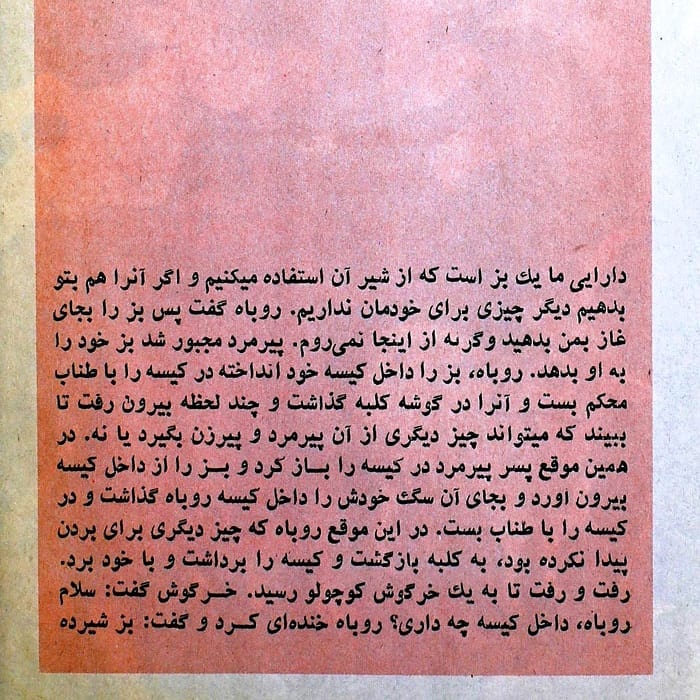 دارایی ما یك بز است كه از شیر آن استفاده میكنیم و اگر آنرا هم بتو
بدهیم دیگر چیزی برای خودمان نداریم. روباه گفت پس بز را بجای
غاز بمن بدهید وگرنه از اینجا نمی‌روم. پیرمرد مجبور شد بز خود را
به او بدهد. روباه، بز را داخل كیسه خود انداخته در كیسه را با طناب
محكم بست و آنرا در گوشه كلبه گذاشت و چند لحظه بیرون رفت تا
ببیند كه میتواند چیز دیگری از آن پیرمرد و پیرزن بگیرد یا نه. در
همین موقع پسر پیرمرد در كیسه را بـاز كرد و بـز را از داخل كیسه
بیرون آورد و بجای آن سگ خودش را داخل كیسه روباه گذاشت و در
كیسه را با طناب بست. در این موقع روباه كه چیز دیگری برای بردن
پیدا نكرده بود، به كلبه بازگشت و كیسه را برداشت و با خود برد.
رفت و رفت تا به یك خرگوش كوچولو رسید. خـرگوش گفت: سلام
روباه، داخل كیسه چه داری؟ روباه خنده‌ای كـرد و گفت: بز شیرده